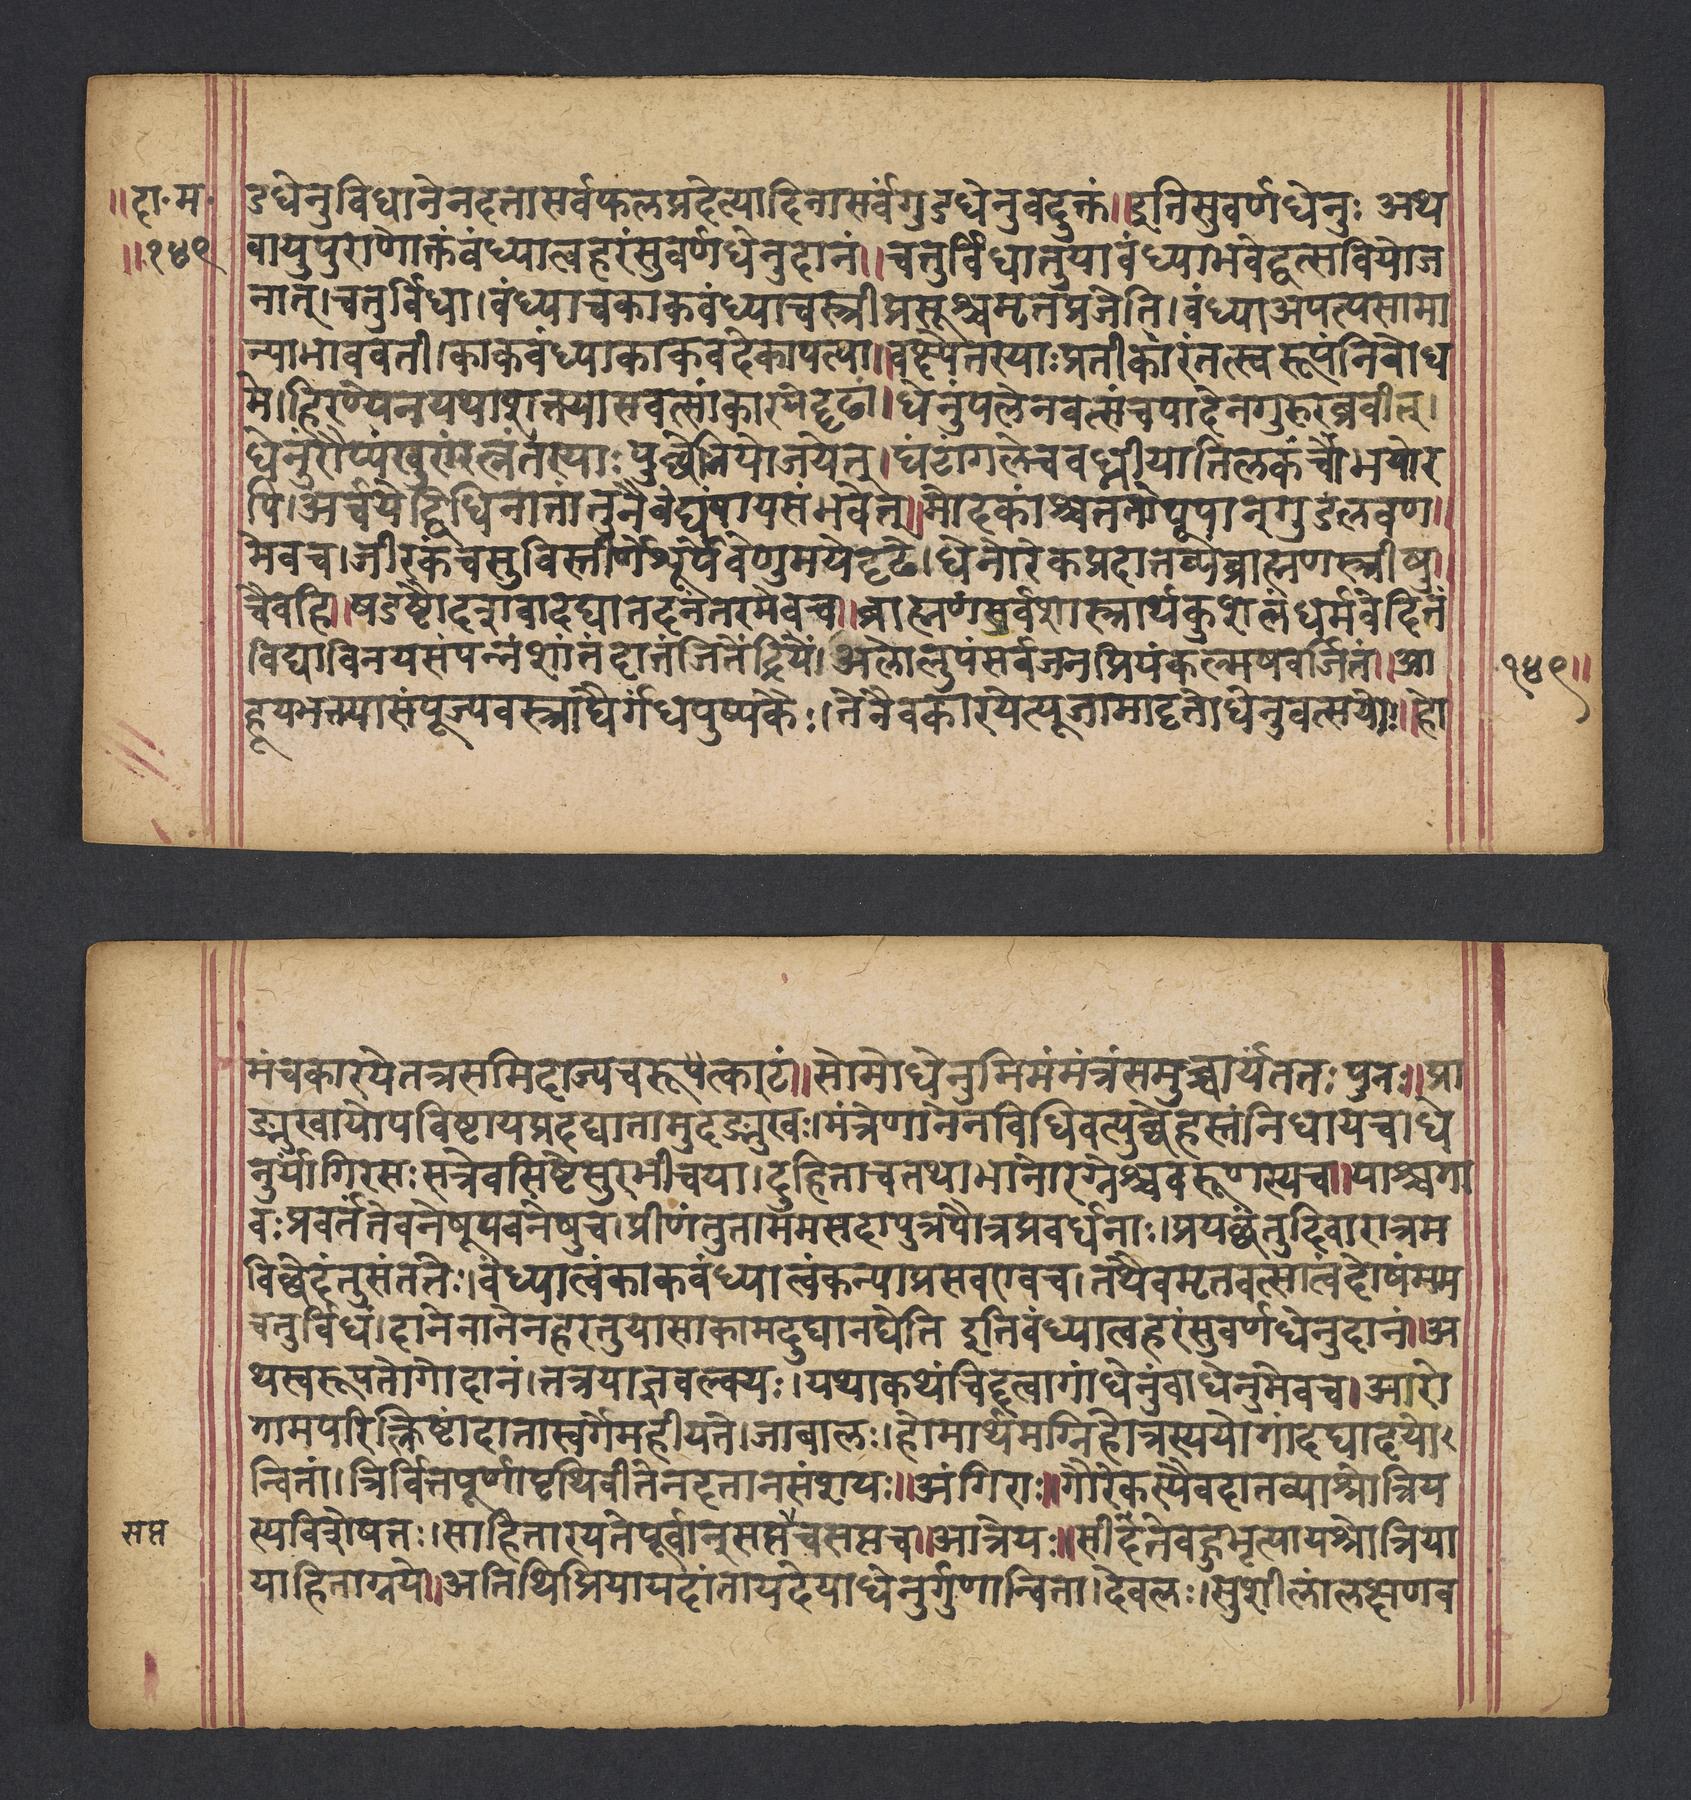 ॥दा॰म॰
॥१४९
डधेनुविधानेनदत्तासर्वफलप्रदेत्यादिनासर्वंगुडधेनुवदुक्तं॥इतिसुवर्णधेनुः अथ
वायुपुराणोक्तंवंध्यात्वहरंसुवर्णधेनुदानं॥चतुर्विधातुयावंध्याभवेद्वत्सवियोज
नात्।चतुर्विधा।वंध्याचकाकवंध्याचस्त्रीप्रसूश्चमृतप्रजेति।वंध्याअपत्यसामा
न्याभाववती।काकवंध्याकाकवदेकापत्या॥वक्ष्येतस्याःप्रतीकारंतत्स्वरूपंनिबोध
मे।हिरण्येनयथाशक्तयासवत्सांकारयेदृढां।धेनुंपलेनवत्संचपादेनगुरुरब्रवीत्।
धेनुंरौप्यंखुरंरत्नंतस्याःपुच्छेनियोजयेत्।घंटांगलेचबध्नीयात्तिलकंचोभयोर
पि।अर्चयेद्विधिनातांतुनैवेद्यंपायसंभवेत्॥मोदकांश्चततोपूपान्गुडंलवण॥
मेवच।जीरकंचसुविस्तीर्णेशूर्पेवेणुमयेदृढे।धेनोरेकप्रदातव्यंब्राह्मणस्त्रीषु॥
चैवहि॥षडष्टौदशवादद्यात्तदनंतरमेवच॥ब्राह्मणंसर्वशास्त्रार्थकुशलंधर्मवेदिनं
विद्याविनयसंपन्नंशांतंदांतंजितेंद्रियं।अलोलुपंसर्वजनप्रियंकल्मषवर्जितं॥आ
हूयभक्तयासंपूज्यवस्त्राद्यैर्गंधपुष्पकैः।तेनैवकारयेत्पूजामादृतोधेनुवत्सयोः॥हो
१४९॥
मंचकारयेतत्रसमिदाज्यचरूपत्काटं॥सोमोधेनुमिमंमंत्रंसमुच्चार्यततःपुनः॥प्रा
ङ्मुखायोपविष्टायप्रदद्यात्तामुदङ्मुखः।मंत्रेणानेनविधिवत्पुच्छेहस्तंनिधायच।धे
नुर्यांगिरसःसत्रेवसिष्टेसुरभीचया।दुहिताचतथाभानोरग्नेश्चवरूणस्यच॥याश्चगा
वःप्रवर्तंतेवनेषूपवनेषुच।प्रीणंतुताममसदापुत्रपौत्रप्रवर्धनाः।प्रयछंतुदिवारात्रम
विछेदंतुसंततेः।वंध्यात्वंकाकवंध्यात्वंकन्याप्रसवएवच।तथैवमृतवत्सात्वंदोषंमम
चतुर्विधं।दानेनानेनहरतुयासाकामदुघानघेति इतिवंध्यात्वहरंसुवर्णधेनुदानं॥अ
थस्वरूपतोगोदानं।तत्रयाज्ञवल्क्यः।यथाकथंचिद्दत्वागांधेनुंवाधेनुमेवच।आरो
गामपरिक्लिष्टांदातास्वर्गेमहीयते।जाबालः।होमार्थमग्निहोत्रस्ययोगांदद्यादयो
न्वितां।त्रिर्वित्तपूर्णापृथिवीतेनदत्तानसंशयः॥अंगिराः॥गौरेकस्यैवदातव्याश्रोत्रिय
स्यविशेषतः।साहितारयतेपूर्वान्सप्तचसप्तच॥आत्रेयः॥सीदतेबहुभृत्यायश्रोत्रिया
सप्त
याहिताग्नये॥अतिथिप्रियायदांतायदेयाधेनुर्गुणान्विता।देवलः।सुशीलांलक्षणव